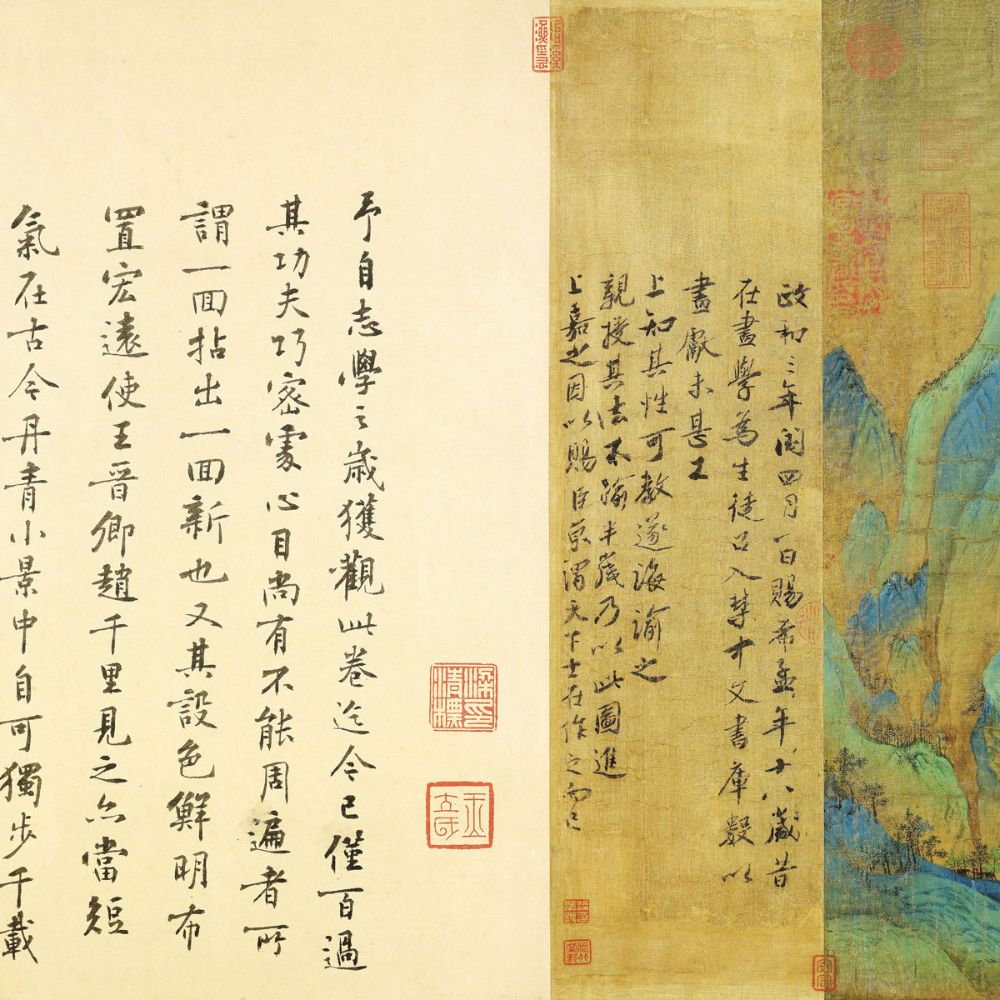 政和三年閏四月一日賜希孟年十八歲昔
在畫學為生徒召入禁中文書庫數以
畫獻未甚工
上知其性可教遂誨諭之
親授其法不踰半歲乃以此圖進
上嘉之因以賜臣京謂天下士在作之而已
予自志學之歲獲觀此卷迄今已僅百過
其功夫巧密處心目尚有不能周遍者所
謂一回拈出一回新也又其設色鮮明布
置宏遠使王晉卿趙千里見之亦當短
氣在古今丹青小景中自可獨步千載
梁印清標